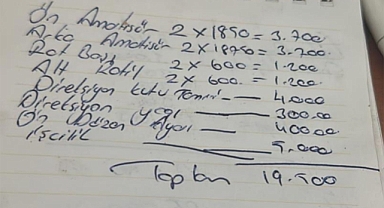 Ön Amortisör 2 x 1850 = 3.700
Arka Amortisör 2 x 1850 = 3.700
Rot Başı 2 x 600 = 1.200
Alt Rotil 2 x 600 = 1.200
Direksiyon kutu Tamiri — 4.000
Direksiyon yağı — 300.00
Ön Düzen Ayarı — 400.00
işçilik — 5.000
Toplam 19.500